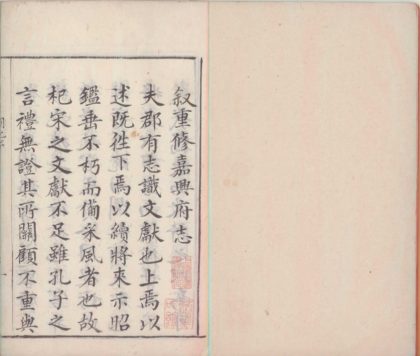 叙重修嘉興府志
夫郡有志識文獻也上焉以
述既徃下焉以續將來示昭
鑑垂不朽而備采風者也故
杞宋之文獻不足雖孔子之
言禮無證其所關顧不重與